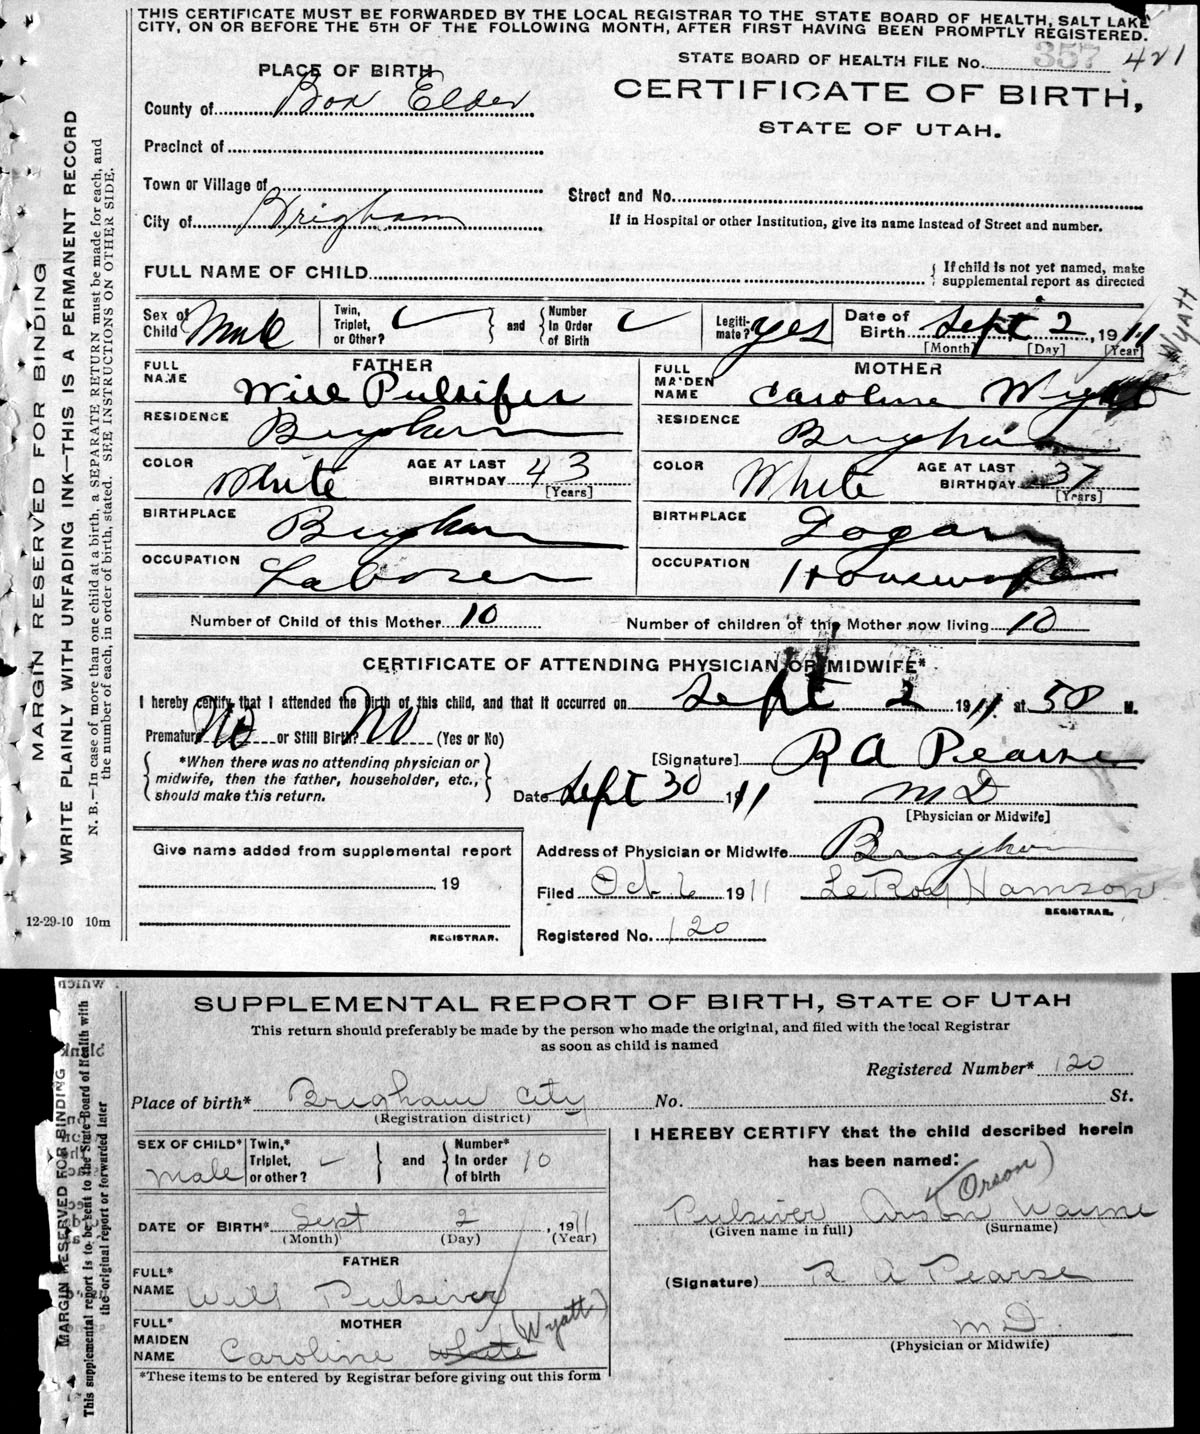 THIS CERTIFICATE MUST BE FORWARDED BY THE LOCAL REGISTRAR TO THE STATE BOARD OF HEALTH, SALT LAKE
CITY, ON OR BEFORE THE 5TH OF THE FOLLOWING MONTH, AFTER FIRST HAVING BEEN PROMPTLY REGISTERED.
STATE BOARD OF HEALTH FILE No. 357 421
PLACE OF BIRTH
CERTIFICATE OF BIRTH,
STATE OF UTAH.
County of Box Elder
Precinct of
Town or Village of
Street and No.
City of Brigham
If in Hospital or other Institution, give its name Instead of Street and number.
FULL NAME OF CHILD
If child is not yet named, make
supplemental report as directed
Sex of Child Male
Twin, Triplet, or Other?
and
Number In Order of Birth
Legiti-mate? yes
Date of Birth Sept 2, 1911
[Month] [Day] [Year]
Wyatt
FATHER
FULL NAME Will Pulsifer
RESIDENCE Brigham
COLOR White
AGE AT LAST BIRTHDAY 43
[Years]
BIRTHPLACE Brigham
OCCUPATION Laborer
MOTHER
FULL MAIDEN NAME Caroline Wyatt
RESIDENCE Brigham
COLOR White
AGE AT LAST BIRTHDAY 37
[Years]
BIRTHPLACE Logan
OCCUPATION Housewife
Number of Child of this Mother 10
Number of children of this Mother now living 10
CERTIFICATE OF ATTENDING PHYSICIAN OR MIDWIFE*
I hereby certify that I attended the birth of this child, and that it occurred on Sept 2 1911 at 50 M.
Premature No or Still Birth? No (Yes or No)
*When there was no attending physician or
midwife, then the father, householder, etc.,
should make this return.
[Signature] R A Pearse
Date Sept 30 1911
M D
[Physician or Midwife]
Give name added from supplemental report
19
REGISTRAR.
Address of Physician or Midwife Brigham
Filed Oct 6 1911 LeRoy Hamson
REGISTRAR.
Registered No. 120
MARGIN RESERVED FOR BINDING
WRITE PLAINLY WITH UNFADING INK—THIS IS A PERMANENT RECORD
N. B.—In case of more than one child at a birth, a SEPARATE RETURN must be made for each, and
the number of each, in order of birth, stated. SEE INSTRUCTIONS ON OTHER SIDE.
12-29-10 10m
SUPPLEMENTAL REPORT OF BIRTH, STATE OF UTAH
This return should preferably be made by the person who made the original, and filed with the local Registrar
as soon as child is named
Registered Number* 120
Place of birth* Brigham City No. St.
(Registration district)
SEX OF CHILD* Male
Twin,* Triplet, or other?
and
Number* In order of birth 10
DATE OF BIRTH* Sept 2, 1911
(Month) (Day) (Year)
FATHER
FULL* NAME Will Pulsiver
MOTHER
FULL* MAIDEN NAME Caroline White (Wyatt)
*These items to be entered by Registrar before giving out this form
I HEREBY CERTIFY that the child described herein
has been named:
Orson)
Pulsiver Arson Wayne
(Given name in full) (Surname)
(Signature) R A Pearse
M D.
(Physician or Midwife)
MARGIN RESERVED FOR BINDING
This supplemental report is to be sent to the State Board of Health with
the original report or forwarded later